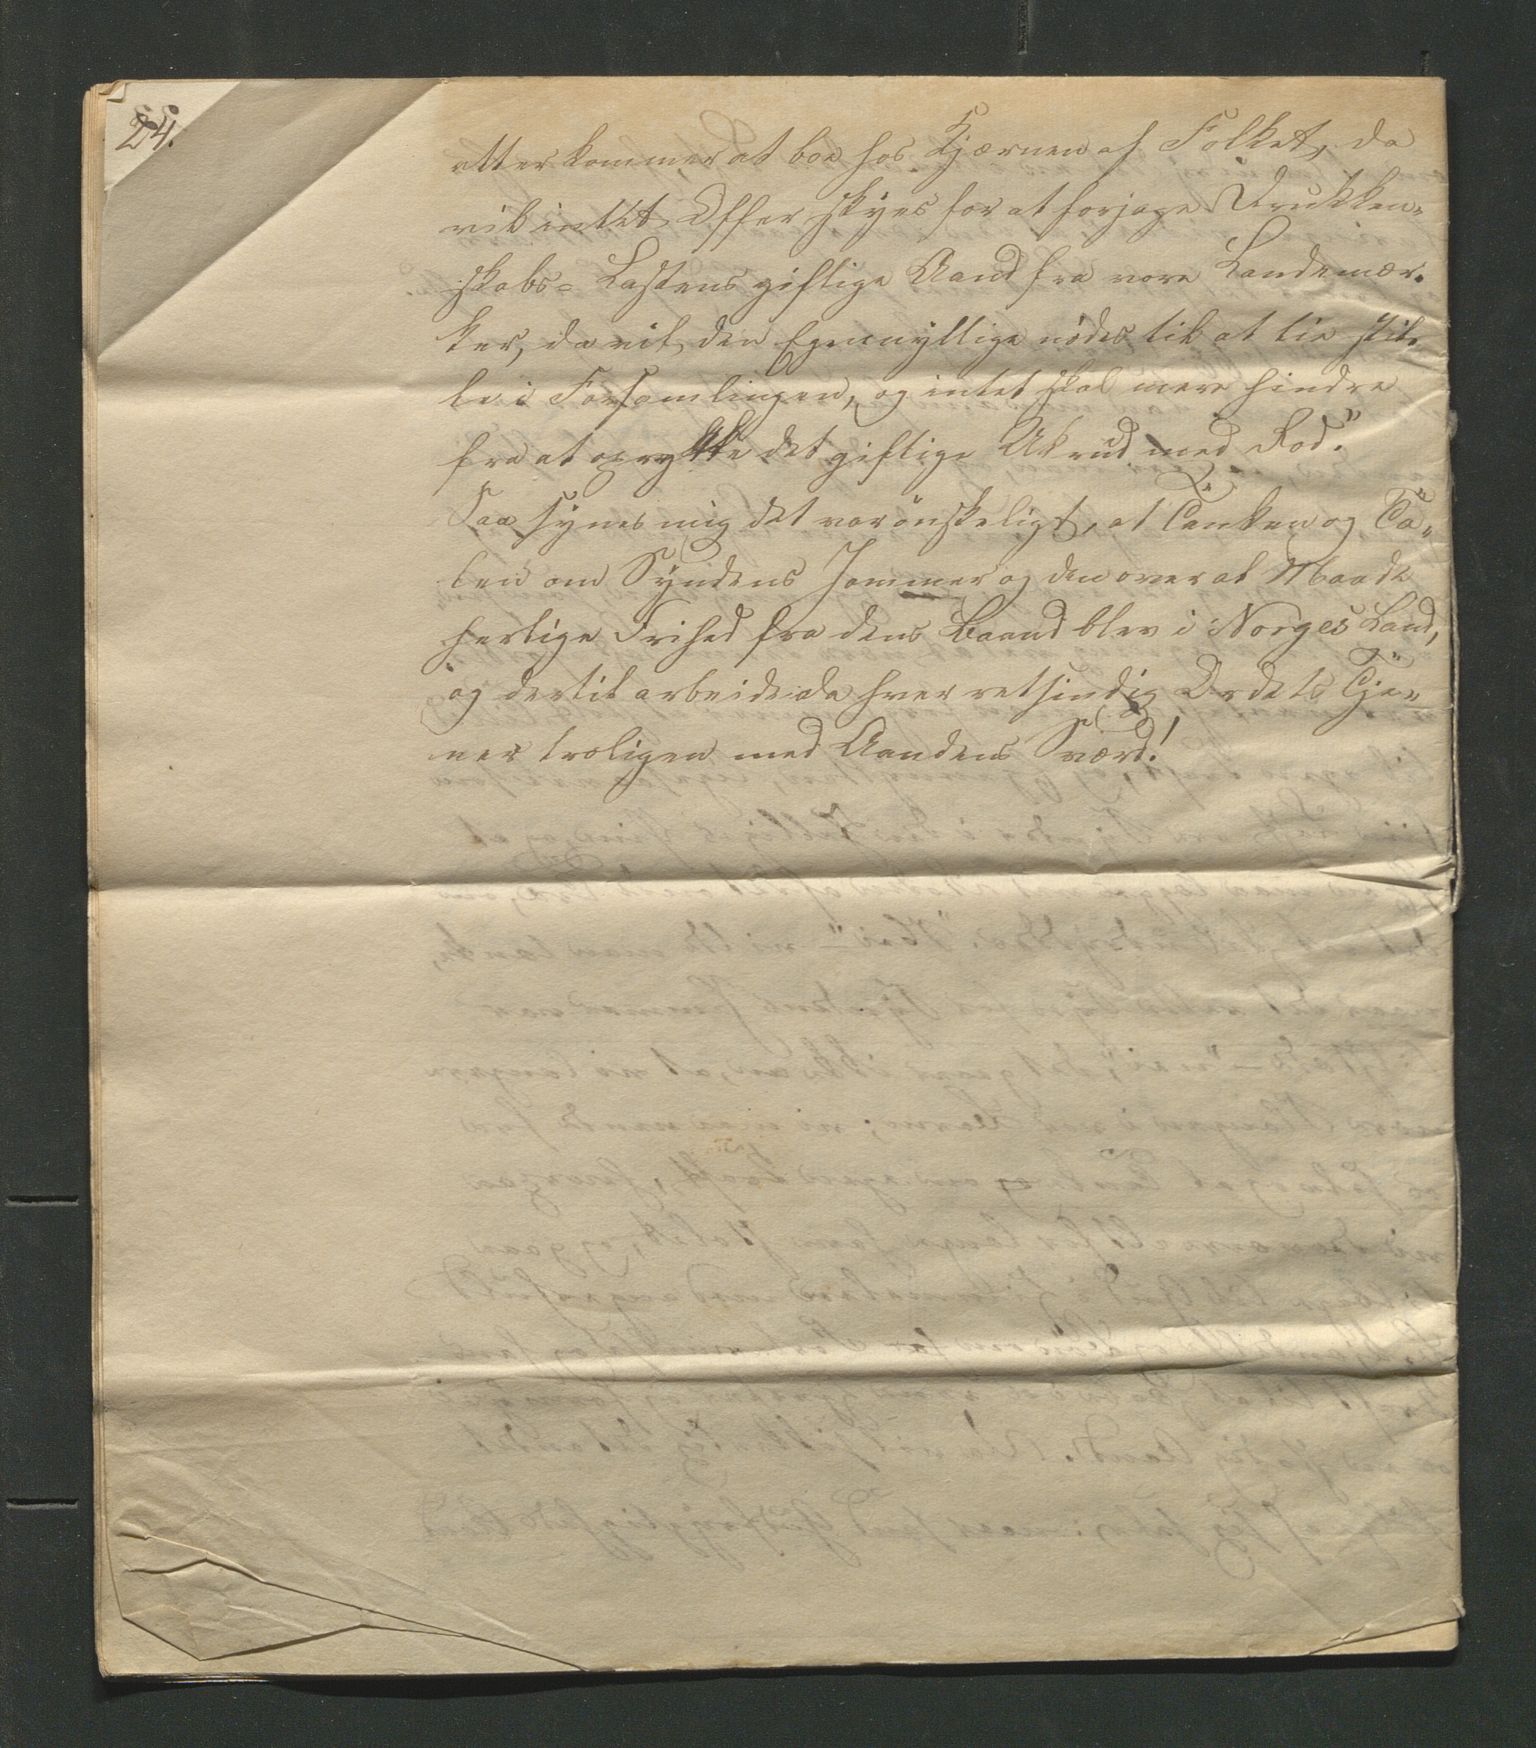 24.
atter kommer at boe hos Kjærnen af Folket, da
vil intet Offer skyes for at forjage Drukken-
skabs-Lastens giftige Aand fra vore Landemær-
ker, da vil den Egennyttige nødes til at tie stil-
le i Forsamlingen, og intet skal mere hindre
fra at oprykke det giftige Ukrud med Rod."
Saa synes mig det var ønskeligt, at Tanken og Ta-
len om Syndens Jammer og den over al Maade
herlige Frihed fra dens Baand blev i Norges Land,
og dertil arbeide da hver retsindig Ordets Tje-
ner troligen med Aandens Sværd!